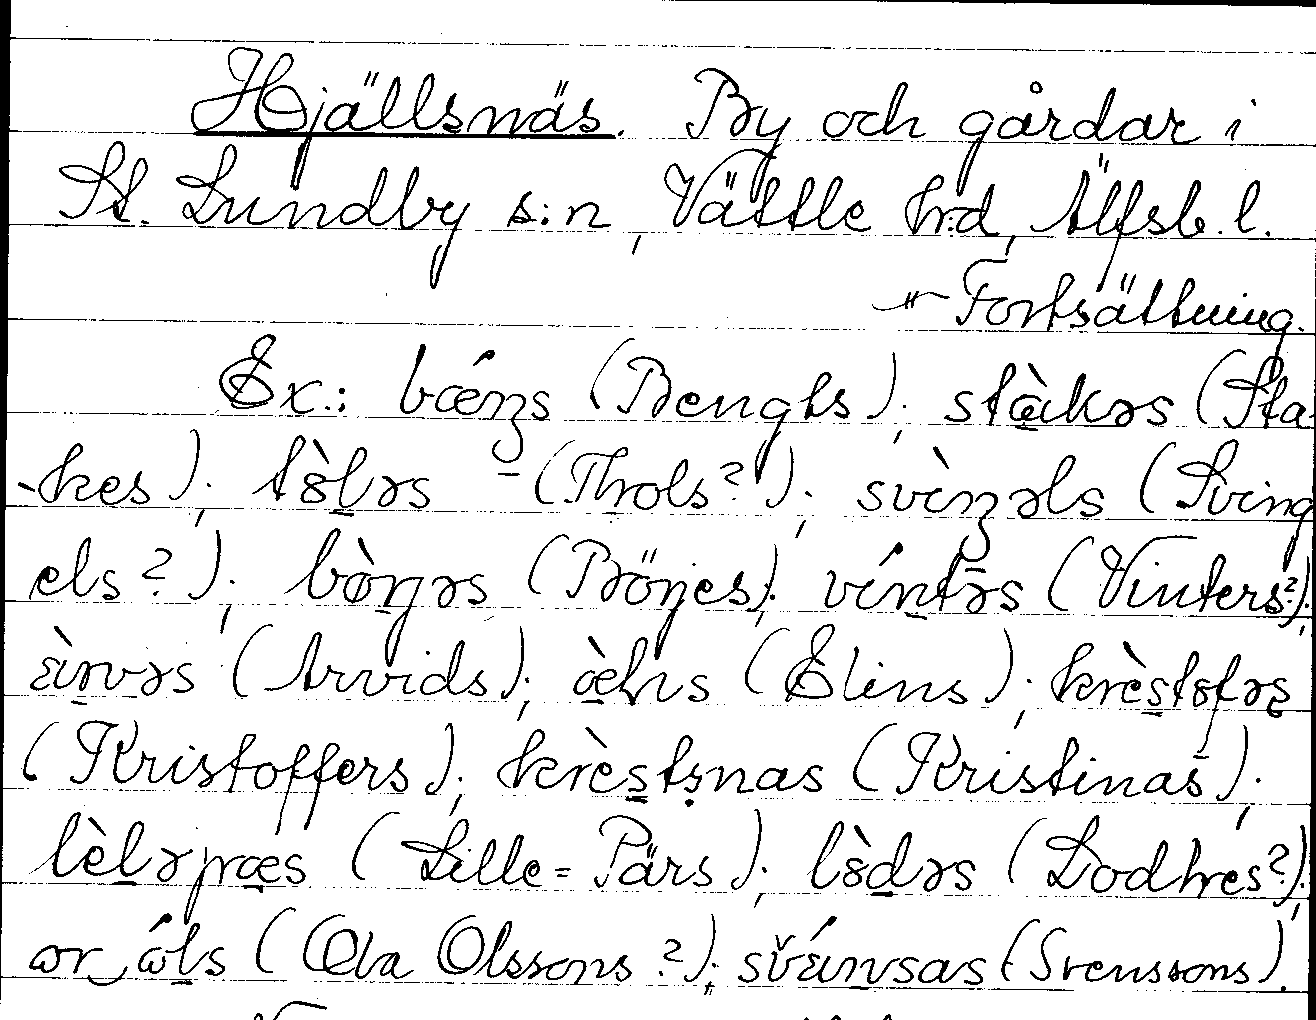 Hjällsnäs. By och gårdar i
St. Lundby s:n, Vättle h:d, Älfsb. l.
Fortsättning.
Ex.: bǽŋs (Bengts); stàkəs (Sta-
-kes); tòləs (Throls?); svìŋəls (Sving
els?); bø̀ŋəs (Börjes); víntəs (Vinters?);
(Arvids); (Elins);
(Kristoffers); krèstṇnas (Kristinas);
lèləpæs (Lille=Pärs); lòdəs (Lodhes?);
(Ola Olssons?); (Svenssons).